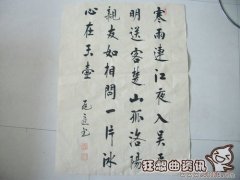 寒雨連江夜入吳平
明送客楚山孤洛陽
親友如相問一片冰
心在玉壺
狂想曲资讯